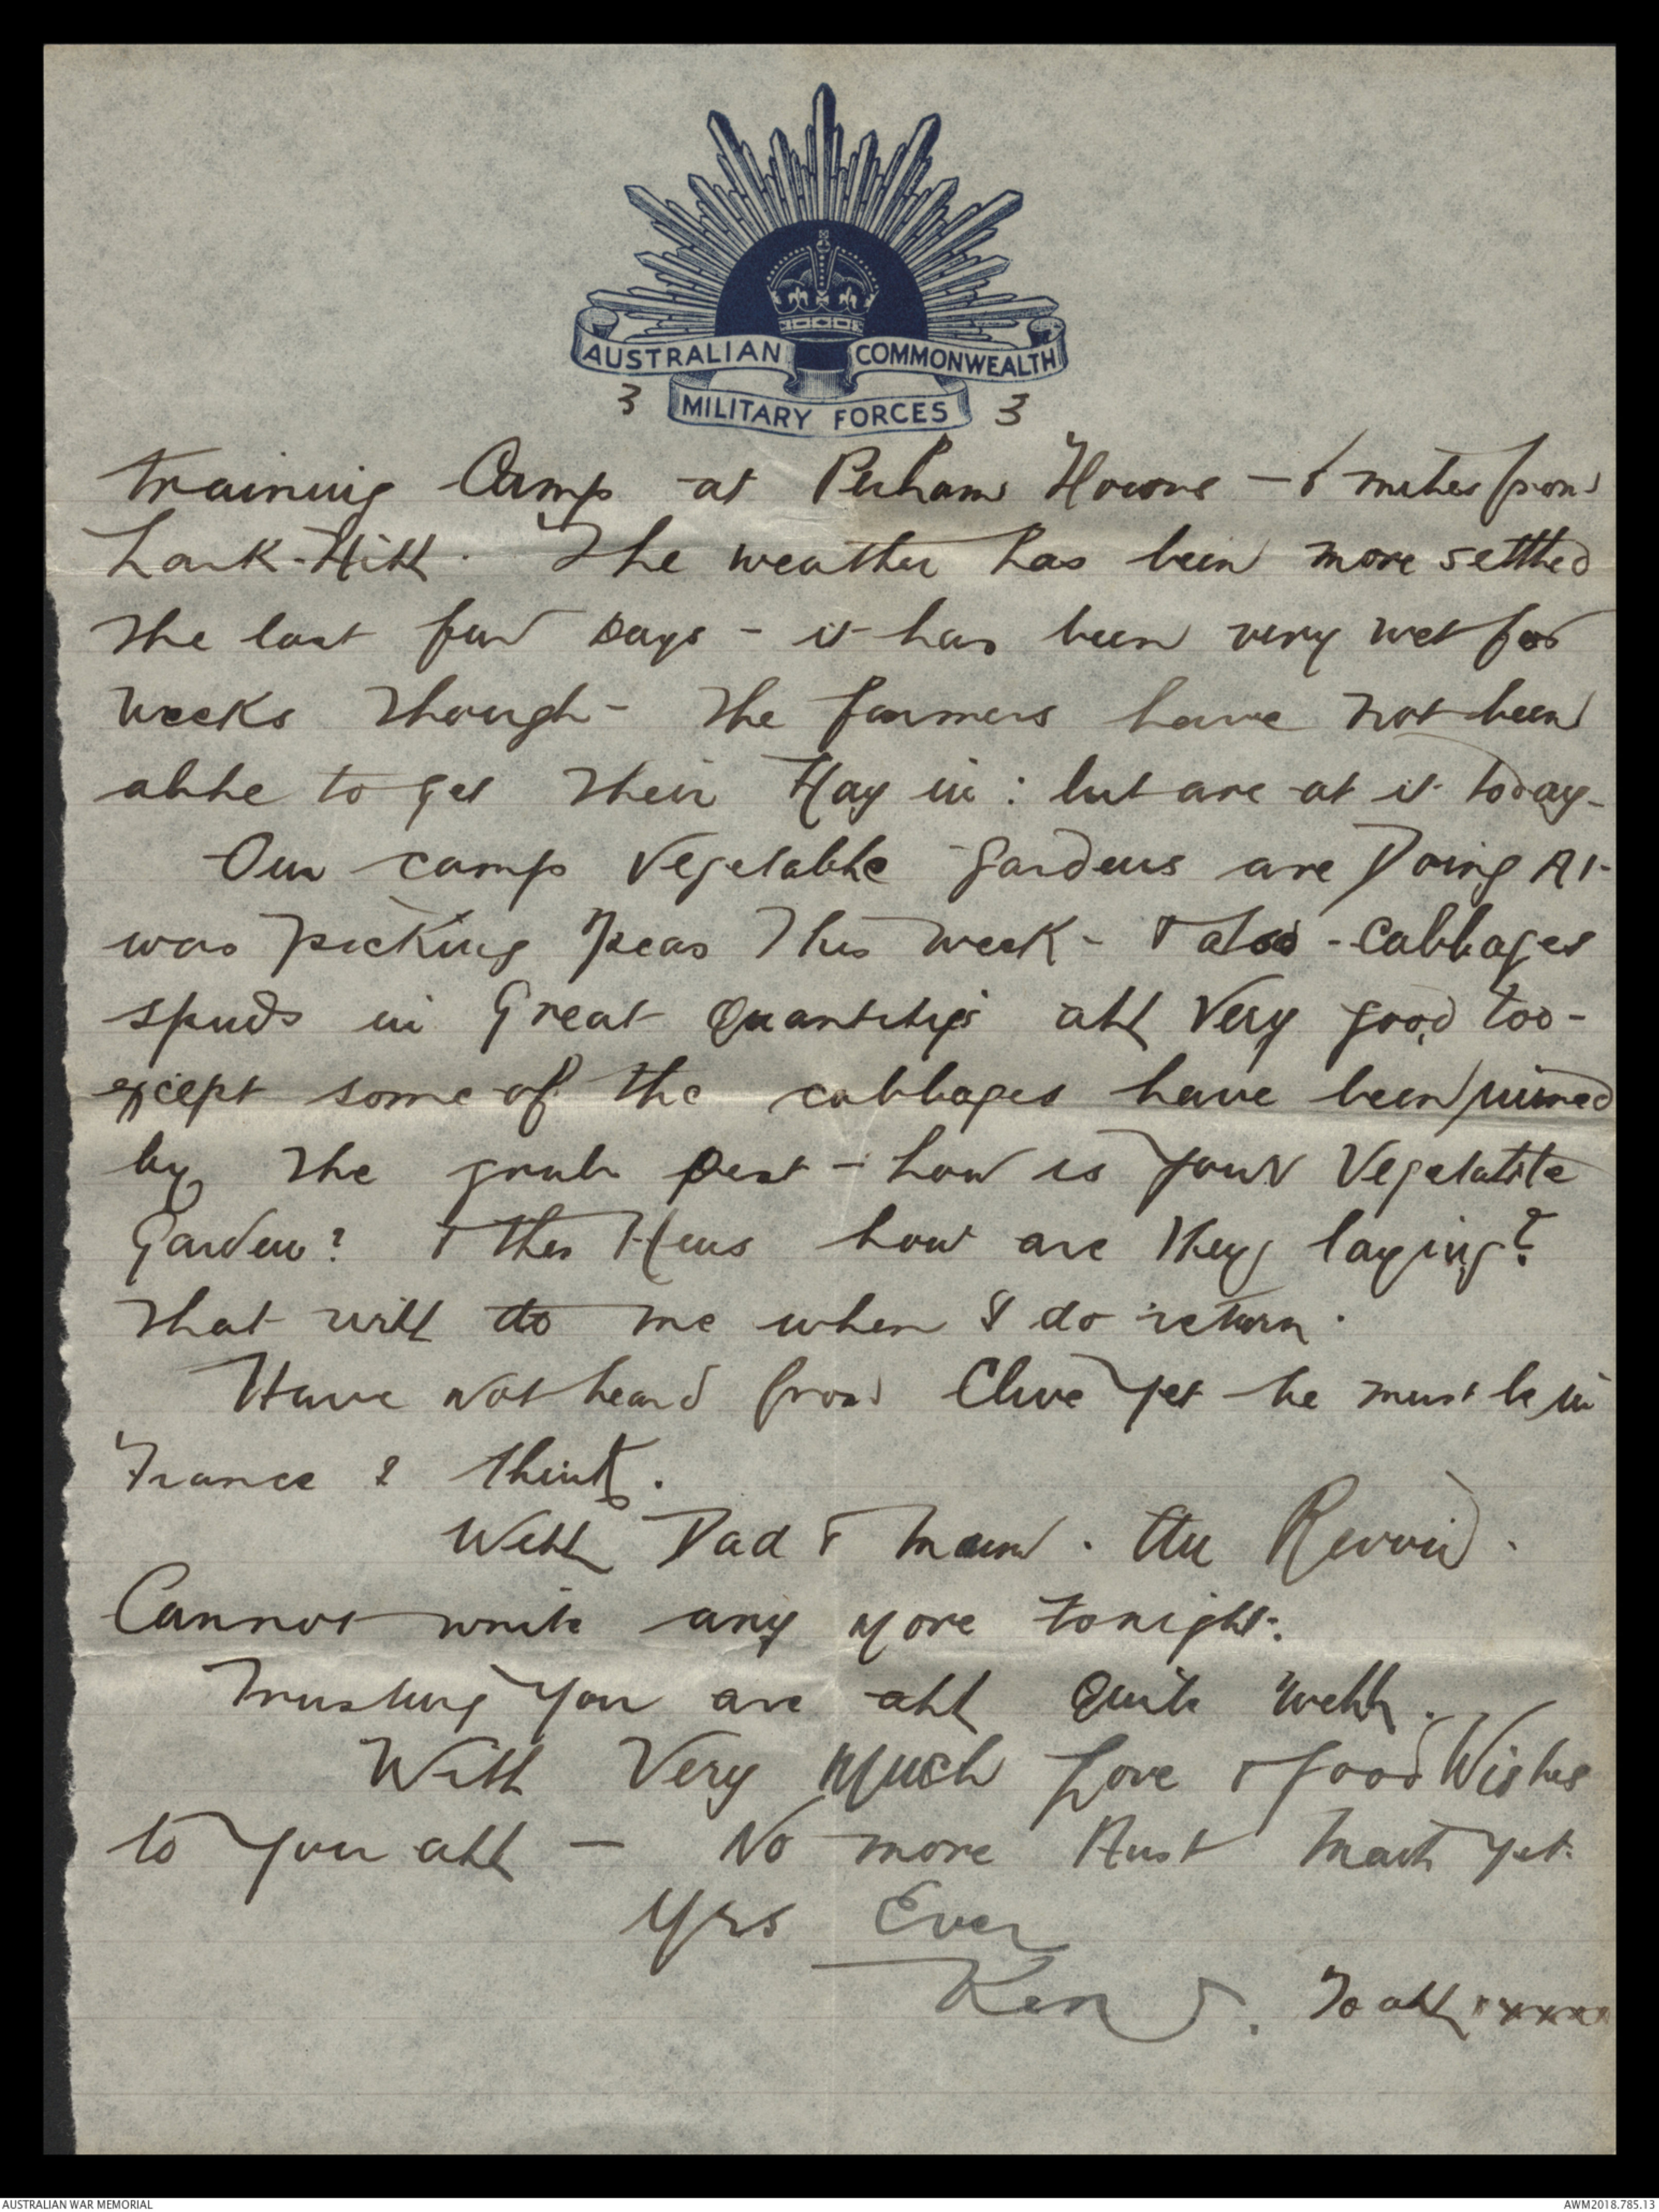 AUSTRALIAN COMMONWEALTH
3 MILITARY FORCES 3
training Camp at Perham Downs - 6 miles from
Lark-Hill. The weather has been more settled
the last few days - it has been very wet for
weeks though - the farmers have not been
able to get their Hay in: but are at it today-
Our camp Vegetable gardens are Doing A1-
was picking peas this week - & also - cabbages
spuds in Great Quantitys all Very good too-
except some of the cabbages have been ruined
by the grub pest - how is your Vegetable
Garden? & the Hens how are they laying?
that will do me when I do return.
Have not heard from Clive yet he must be in
France I think.
Well Dad & Mum. Au Revoir.
Cannot write any more tonight.
Trusting you are all quite well.
With Very Much Love & good Wishes
to you all - No more Aust Mail yet.
Yrs Ever
Ken. To all xxxxx
AUSTRALIAN WAR MEMORIAL
AWM2018.785.13